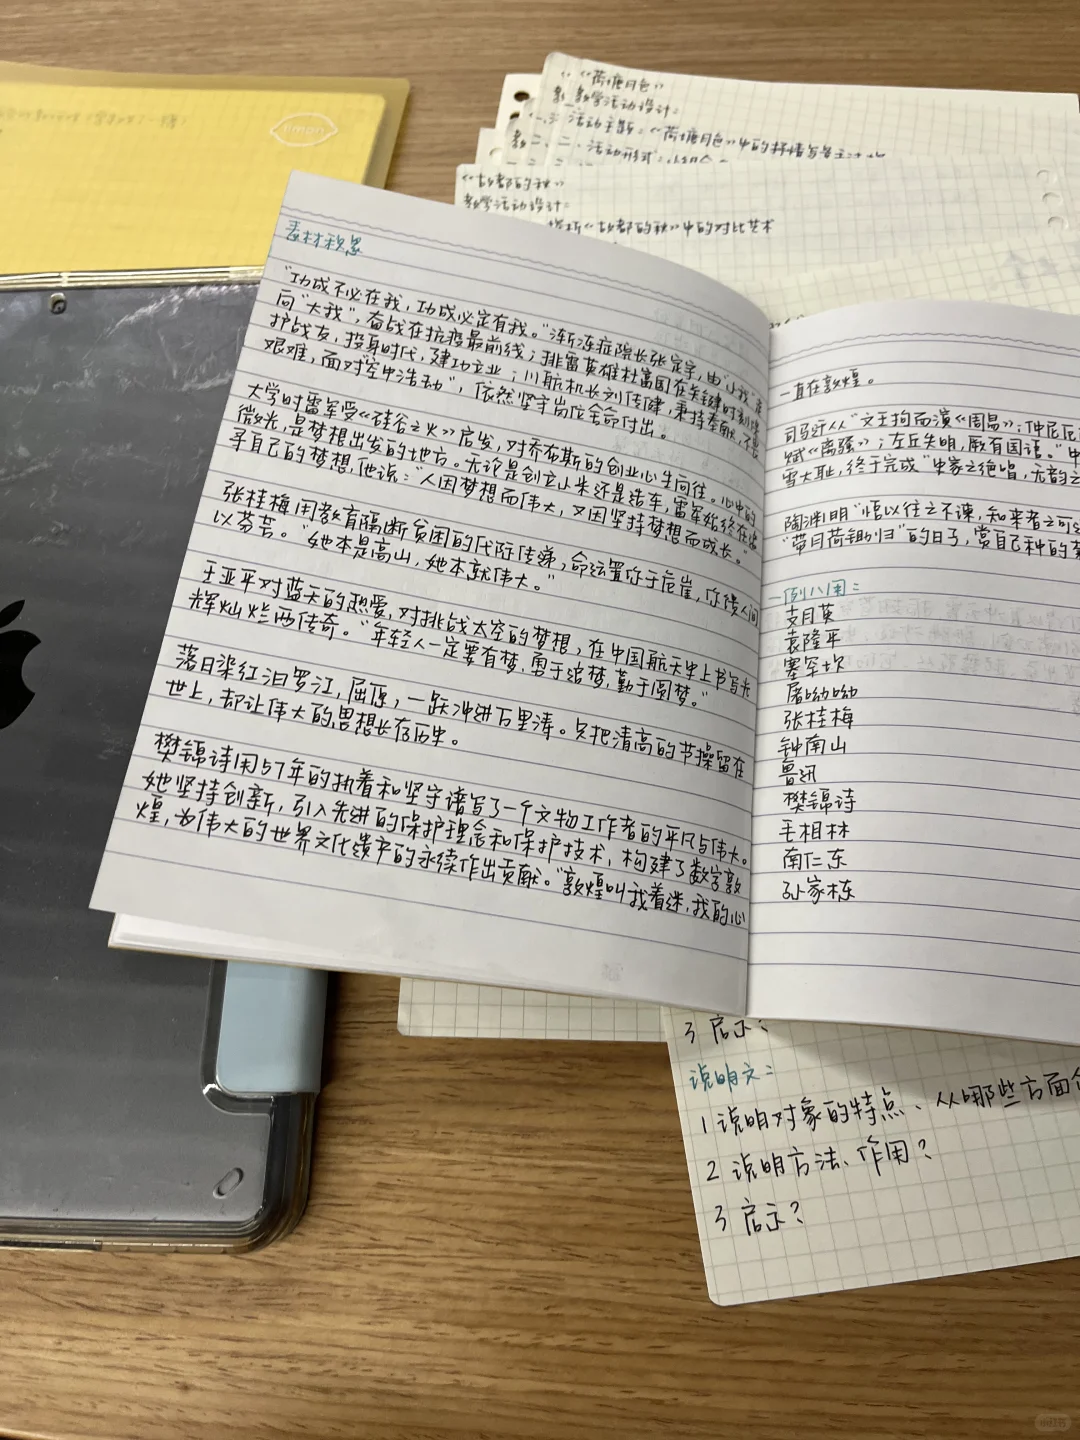 《荷塘月色》
教学活动设计：
活动主题：《荷塘月色》中的抒情与
二、活动形式：小组合
《故都的秋》
教学活动设计：
赏析《故都的秋》中的对比艺术
素材积累
“功成不必在我，功成必定有我。”渐冻症院长张定宇，由“小我”走
向“大我”，奋战在抗疫最前线；排雷英雄杜富国在关键时刻掩
护战友，投身时代，建功立业；川航机长刘传健，秉持奉献，不畏
艰难，面对“空中浩劫”，依然坚守岗位舍命付出。
大学时雷军受《硅谷之火》启发，对乔布斯的创业心生向往。心中的
微光，是梦想出发的地方。无论是创立小米还是造车，雷军始终在追
寻自己的梦想，他说：“人因梦想而伟大，又因坚持梦想而成长。”
张桂梅用教育隔断贫困的代际传递，命运置你于危崖，你馈人间
以芬芳。“她本是高山，她本就伟大。”
王亚平对蓝天的热爱，对挑战太空的梦想，在中国航天史上书写光
辉灿烂两传奇。“年轻人一定要有梦，勇于追梦，勤于圆梦。”
落日染红汨罗江，屈原，一跃冲进万里涛。只把清高的节操留在
世上，却让伟大的思想长存历史。
樊锦诗用57年的执着和坚守谱写了一个文物工作者的平凡与伟大。
她坚持创新，引入先进的保护理念和保护技术，构建了数字敦
煌，为伟大的世界文化遗产的永续作出贡献。“敦煌叫我着迷，我的心
一直在敦煌。
司马迁从“文王拘而演《周易》；仲尼厄
赋《离骚》；左丘失明，厥有国语。”中
雪大耻，终于完成“史家之绝唱，无韵之
陶渊明“悟以往之不谏，知来者之可
“带月荷锄归”的日子，赏自己种的
一例八用：
支月英
袁隆平
塞罕坝
屠呦呦
张桂梅
钟南山
鲁迅
樊锦诗
毛相林
南仁东
孙家栋
3 启示？
说明文：
1 说明对象的特点、从哪些方面
2 说明方法、作用？
3 启示？
lemon
小红书